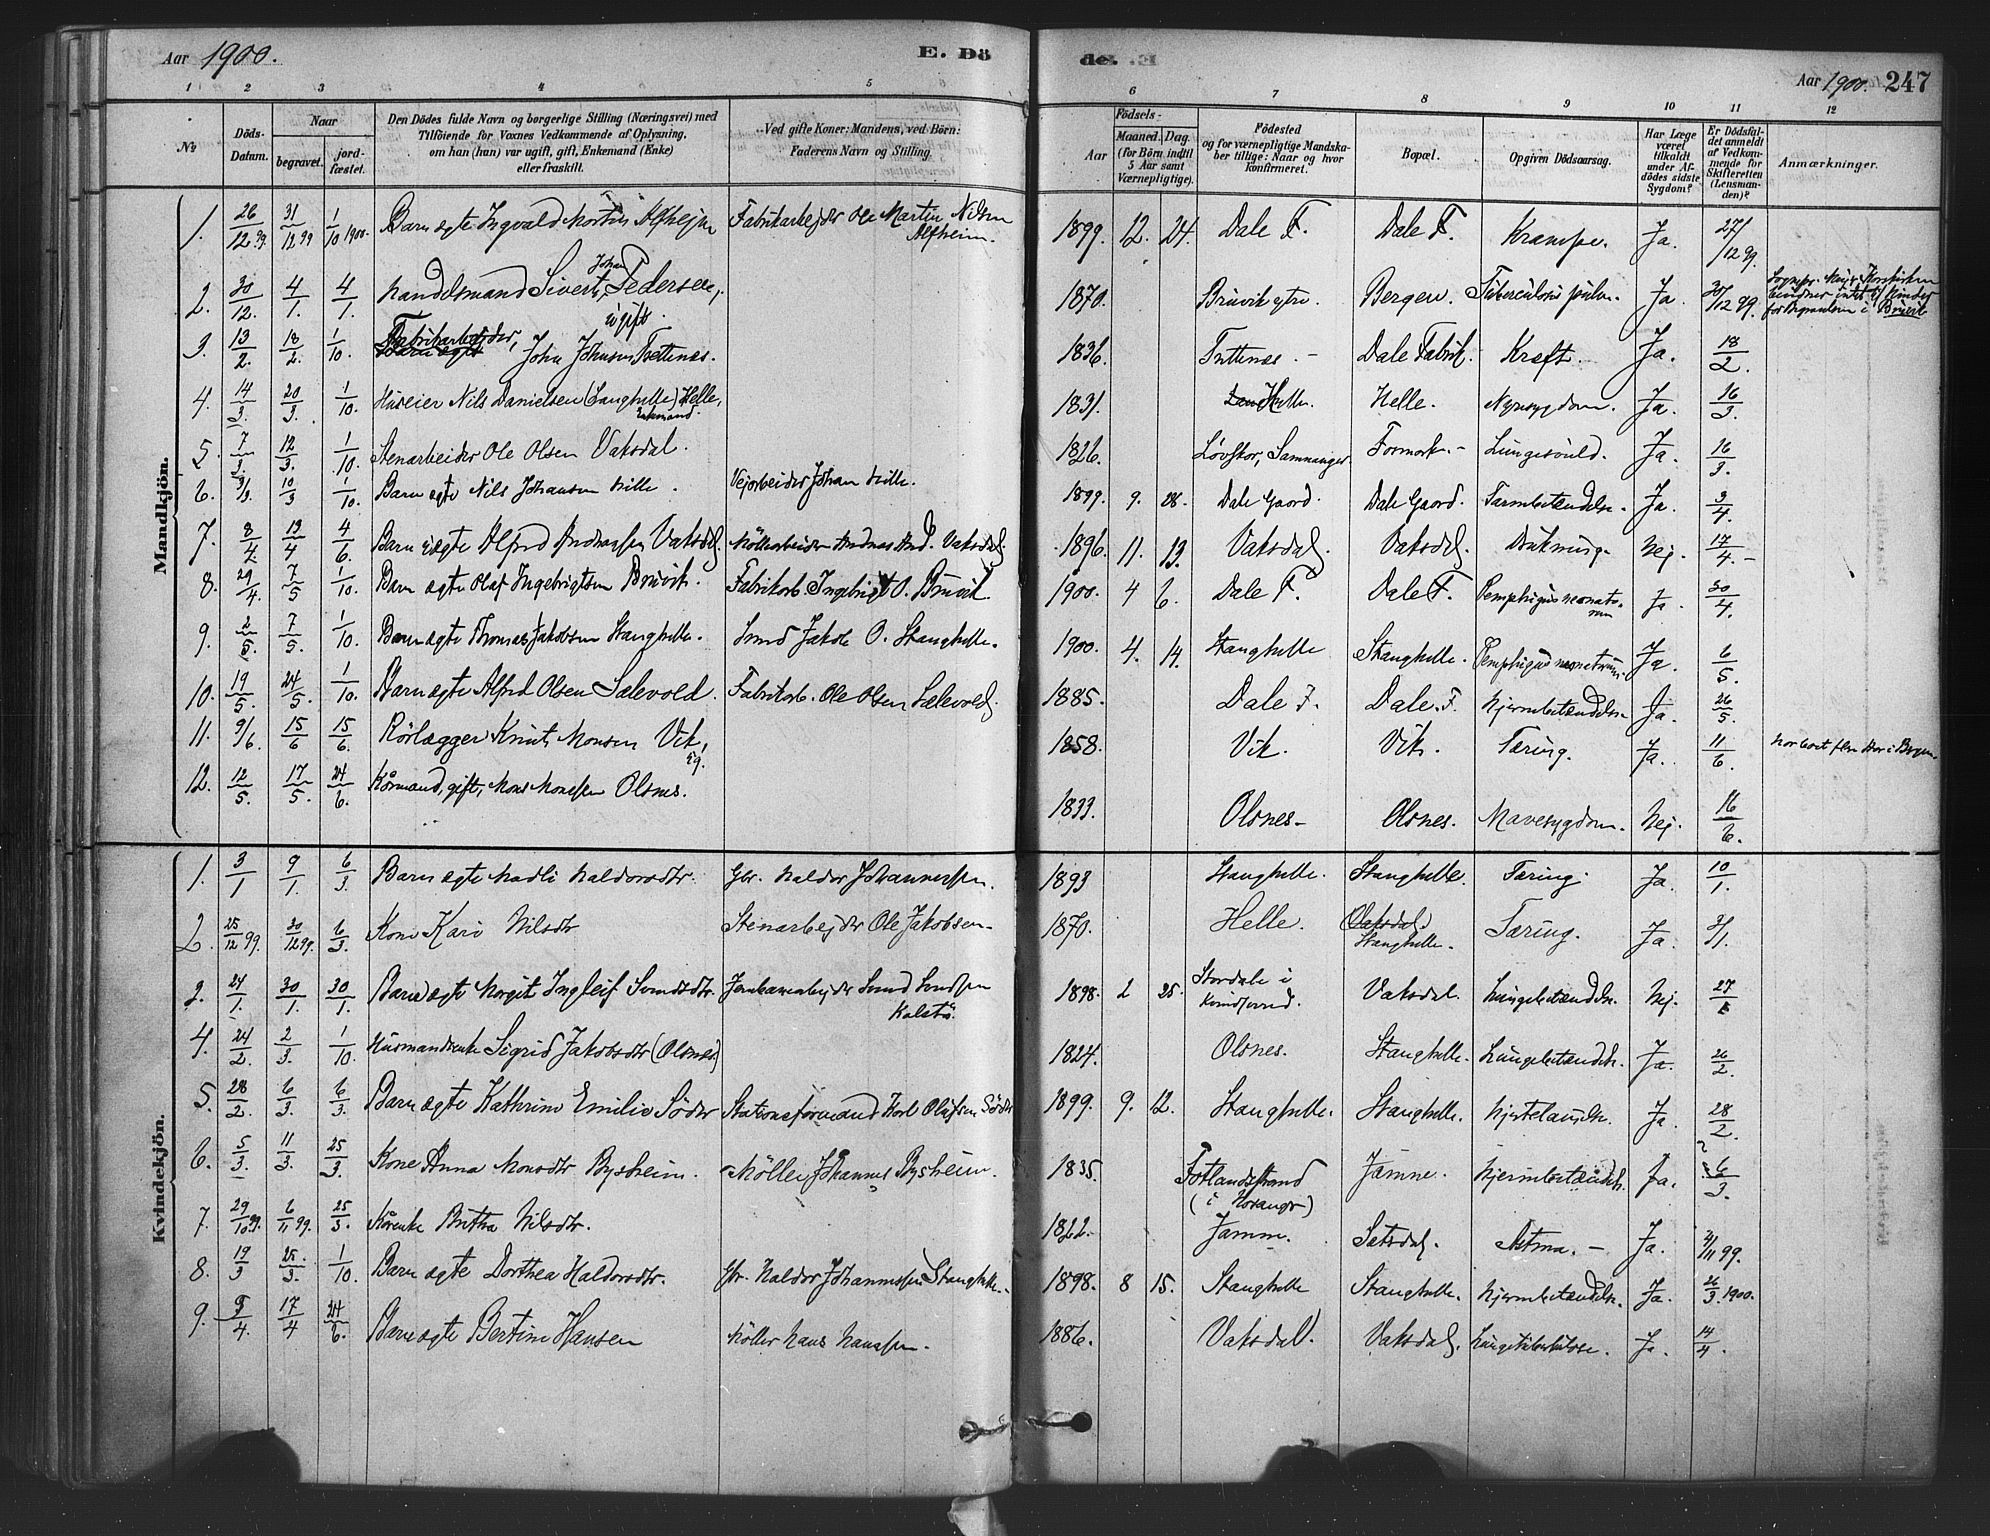 Aar 1900. E. Dö
de. E Aar 1900. 247
1 2 3 4 5
6 7 8 9 10 11 12
No
Döds-
Datum.
Naar
begravet.
jord-
fæstet.
Den Dödes fulde Navn og borgerlige Stilling (Næringsvei) med
Tilföiende for Voxnes Vedkommende af Oplysning,
om han (hun) var ugift, gift, Enkemand (Enke)
eller fraskilt.
Ved gifte Koner: Mandens, ved Börn:
Faderens Navn og Stilling.
Födsels-
Aar
Maaned. Dag.
(for Börn indtil
5 Aar samt
Værnepligtige).
Födested
og for værnepligtige Mandska-
ber tillige: Naar og hvor
konfirmeret.
Bopæl.
Opgiven Dödsaarsag.
Har Læge
været
tilkaldt
under Af-
dödes sidste
Sygdom?
Er Dödsfal-
det anmeldt
af Vedkom-
mende for
Skifteretten
(Lensman-
den)?
Anmærkninger.
Mandkjön.
1. 26/12 99. 31/12 99 1/10 1900. Barn ægte Ingvald Martin Alfheim Fabrikarbejder Ole Martin Nilsen Alfheim. 1899. 12. 24. Dale F. Dale F. Krampe. Ja. 27/12 99.
2. 30/12. 4/1. 4/1. Handelsmand Sivert Johan Pedersen, ugift. 1870. Bruvik ytre. Bergen. Tuberculosis pulm. Ja. 30/12 99.
3. 13/2. 18/2. 1/10. Fabrikarbeider, John Johnsen Tettenæs. 1836. Tettenæs. - Dale Fabrik. Kræft. Ja. 18/2.
4. 14/3. 20/3. 1/10. Huseier Nils Danielsen (Langhelle) Helle, Enkemand. 1831. Helle. Helle. Nyresygdom. Ja. 16/3.
5. 7/3. 12/3. 1/10. Stenarbeider Ole Olsen Vaksdal. 1826. Lövskor, Samnanger Formork. - Lungesvuld. Ja. 16/3.
6. 3/3. 10/3 1/10. Barn ægte Nils Johansen Helle. Vejarbeider Johan Helle. 1899. 9. 28. Dale Gaard. Dale Gaard. Tarmbetændelse. Ja. 3/4.
7. 8/4 13/4 4/6. Barn uægte Alfred Andreassen Vaksdal. Möllerarbeider Andreas And. Vaksdal. 1896. 11. 13. Vaksdal. Vaksdal. Drukning. Nej. 17/4. -
8. 29/4. 7/5 1/10. Barn ægte Olaf Ingebrigtsen Bruvik. Fabrikarb. Ingebrigt O. Bruvik. 1900. 4 6. Dale F. Dale F. Pemphigus neonatorum Ja. 30/4.
9. 2/5. 7/5. 1/10. Barn ægte Thomas Jakobsen Stanghelle. Smed Jakob O. Stanghelle. 1900. 4. 14. Stanghelle Stanghelle. Pemphigus neonatorum. Ja 6/5.
10. 19/5. 24/5. 1/10. Barn ægte Alfred Olsen Sælevold. Fabrikarb. Ole Olsen Sælevold. 1885. Dale F. Dale. F. Hjernebetændelse. Ja. 26/5.
11. 9/6. 15/6 15/6. Rörlægger Knut Monsen Vik, Ug. 1858. Vik. Vik. Tæring. Ja. 11/6.
12. 12/5. 17/5. 24/6. Kårmand, gift, Mons Monssen Olsnes. 1833. Olsnes - Olsnes. Mavesygdom. Nej. 16/6.
Kvindekjön.
1. 3/1 9/1. 6/3. Barn ægte Madli Haldorsdtr. Gbr. Haldor Johannessen. 1893 Stanghelle. Stanghelle. Tæring. Ja. 10/1.
2. 25/12 99. 30/12 99. 6/3. Kone Kari Nilsdtr Stenarbejder Ole Jakobsen. 1870. Helle. Vaksdal. Stanghelle. Tæring. Ja. 3/1.
3. 24/1. 30/1. 30/1. Barn ægte Margit Ingleif Svendsdtr. Jernbanearbejder Svend Svendsen Kalstö. 1898. 2 25. Stordale i Kvindherred. Vaksdal. Lungebetændelse. Nej. 27/1
4. 24/2. 2/3. 1/10. Husmandsenke Sigrid Jakobsdtr (Olsnes) 1824. Olsnes. Stanghelle. Lungebetændelse. Ja. 26/2
5. 28/2. 6/3. 6/3. Barn ægte Kathrine Emilie Söder Stationsformand Karl Olufsen Söder 1899. 9. 12. Stanghelle. Stanghelle. Ja 28/2.
6. 5/3. 11/3. 25/3. Kone Anna Monsdtr Bysheim. Möller Johannes Bysheim. 1835. Fotlandsstrand (i Hosanger) Jamne. Hjernebetændelse. Ja. 6/3.
7. 29/10 99. 6/11 99. 25/3. Kårenke Britha Nilsdtr. 1822. Jamne. Sætsdal. Astma. - Ja. 3/11 99.
8. 19/3 25/3. 1/10. Barn ægte Dorthea Haldorsdtr. Gbr. Haldor Johannessen Stanghelle. 1898. 8 15. Stanghelle Stanghelle. Hjernebetændelse. Ja. 26/3. 1900.
9. 9/4. 17/4 24/6. Barn ægte Bertine Hansen Möller Hans Hanssen. 1886. Vaksdal. Vaksdal. Lungetuberkulose. Ja. 14/4